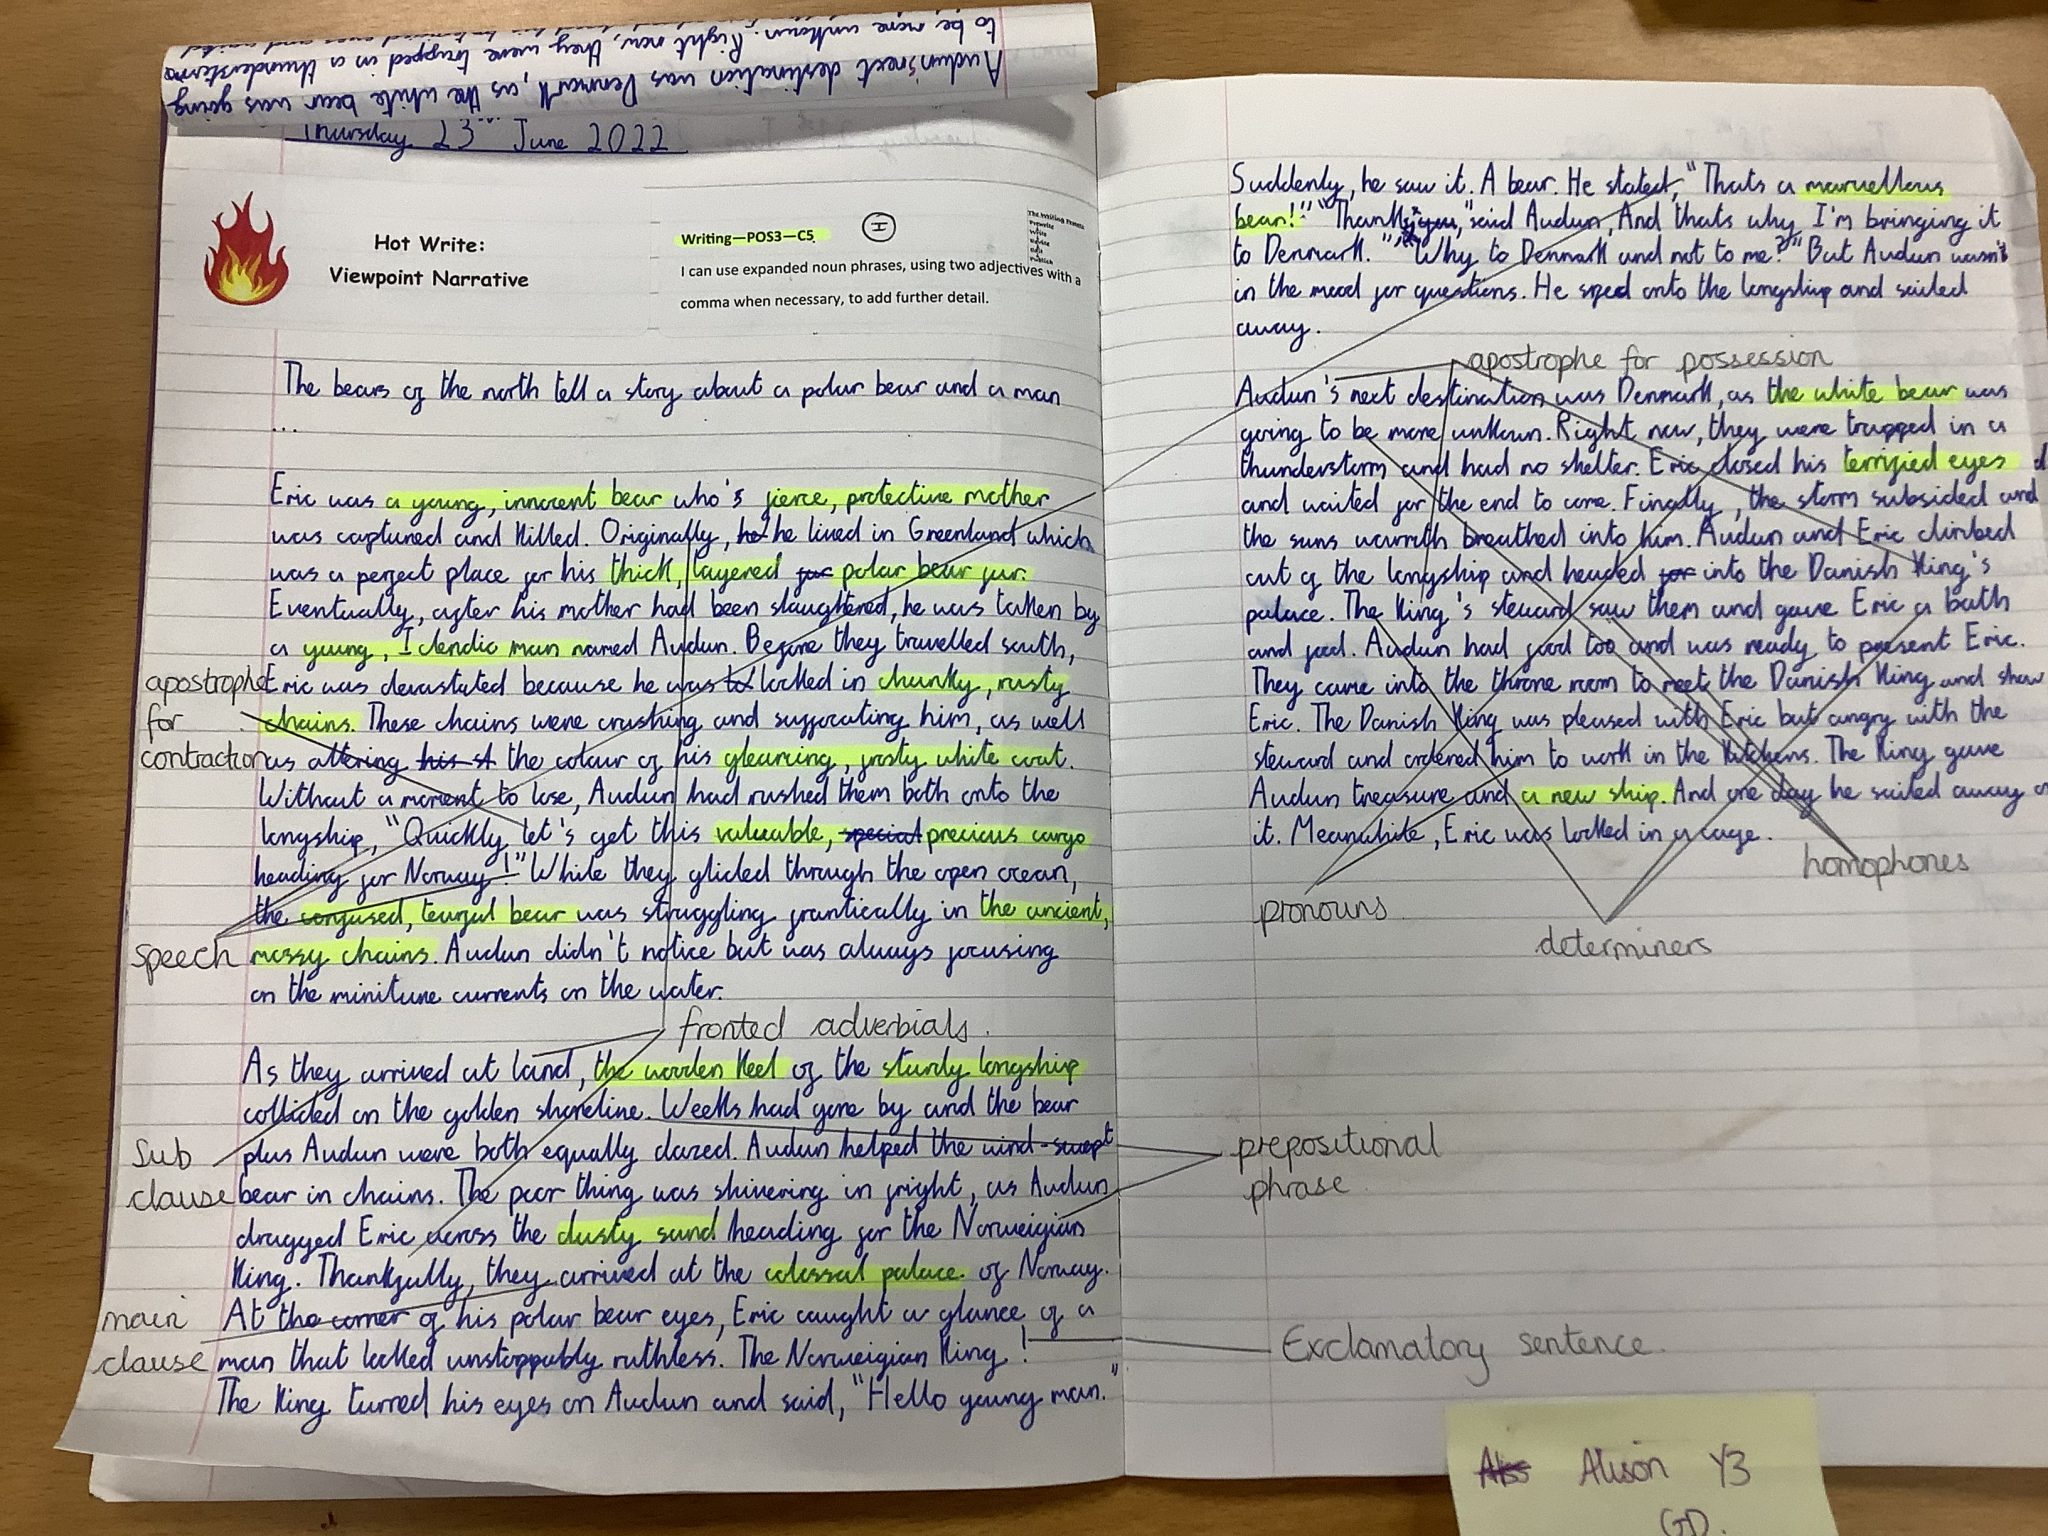 Audun's next destination was Denmark, as the white bear was going
to be more unkown. Right now, they were trapped in a thunderstorm
Thursday 23rd June 2022
Hot Write:
Viewpoint Narrative
Writing—POS3—C5
I
I can use expanded noun phrases, using two adjectives with a
comma when necessary, to add further detail.
The Writing Process
Prewrite
Write
Revise
Edit
Publish
The bears of the north tell a story about a polar bear and a man
...
Eric was a young, innocent bear who's fierce, protective mother
was captured and killed. Originally, he he lived in Greenland which
was a perfect place for his thick, layered fur polar bear fur.
Eventually, after his mother had been slaughtered, he was taken by
a young, Iclendic man named Audun. Before they travelled south,
Eric was devastated because he was to locked in chunky, rusty
chains. These chains were crushing and suffocating him, as well
as altering his st the colour of his gleaming, frosty white coat.
Without a moment to lose, Audun had rushed them both onto the
longship, "Quickly let's get this valuable, special precious cargo
heading for Norway!" While they glided through the open ocean,
the confused, tearful bear was struggling frantically in the ancient,
mossy chains. Audun didn't notice but was always focusing
on the minitune currents on the water.
As they arrived at land, the wooden keel of the sturdy longship
collided on the golden shoreline. Weeks had gone by and the bear
plus Audun were both equally dazed. Audun helped the wind-swept
bear in chains. The poor thing was shivering in fright, as Audun
dragged Eric across the dusty sand heading for the Norweigian
King. Thankfully, they arrived at the colossal palace. of Norway.
At the corner of his polar bear eyes, Eric caught a glance of a
man that looked unstoppably ruthless. The Norweigian King!
The King turned his eyes on Audun and said, "Hello young man."
apostrophe
for
contraction
speech
fronted adverbials.
sub
clause
main
clause
Suddenly, he saw it. A bear. He stated, "Thats a marvellous
bear!" "Thank you," said Audun, And thats why I'm bringing it
to Denmark. " "Why to Denmark and not to me?" But Audun wasn't
in the mood for questions. He sped onto the longship and sailed
away.
apostrophe for possession
Audun's next destination was Denmark, as the white bear was
going to be more unkown. Right now, they were trapped in a
thunderstorm and had no shelter. Eric closed his terrified eyes
and waited for the end to come. Finally, the storm subsided and
the suns warmth breathed into him. Audun and Eric climbed
out of the longship and headed for into the Danish King's
palace. The King's steward saw them and gave Eric a bath
and food. Audun had food too and was ready to present Eric.
They came into the throne room to meet the Danish King and show
Eric. The Danish King was pleased with Eric but angry with the
steward and ordered him to work in the kitchens. The King gave
Audun treasure and a new ship. And one day he sailed away
it. Meanwhite, Eric was locked in a cage.
homophones
pronouns
determiners
prepositional
phrase
Exclamatory sentence.
Alison Y3
GD.